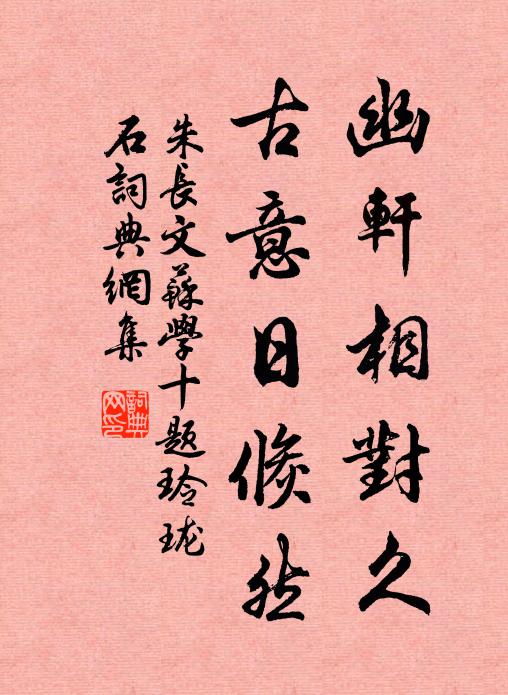 幽軒相對久
古意日倏然
朱長文蘇學十題玲瓏
石詞典網集
詞典
网印